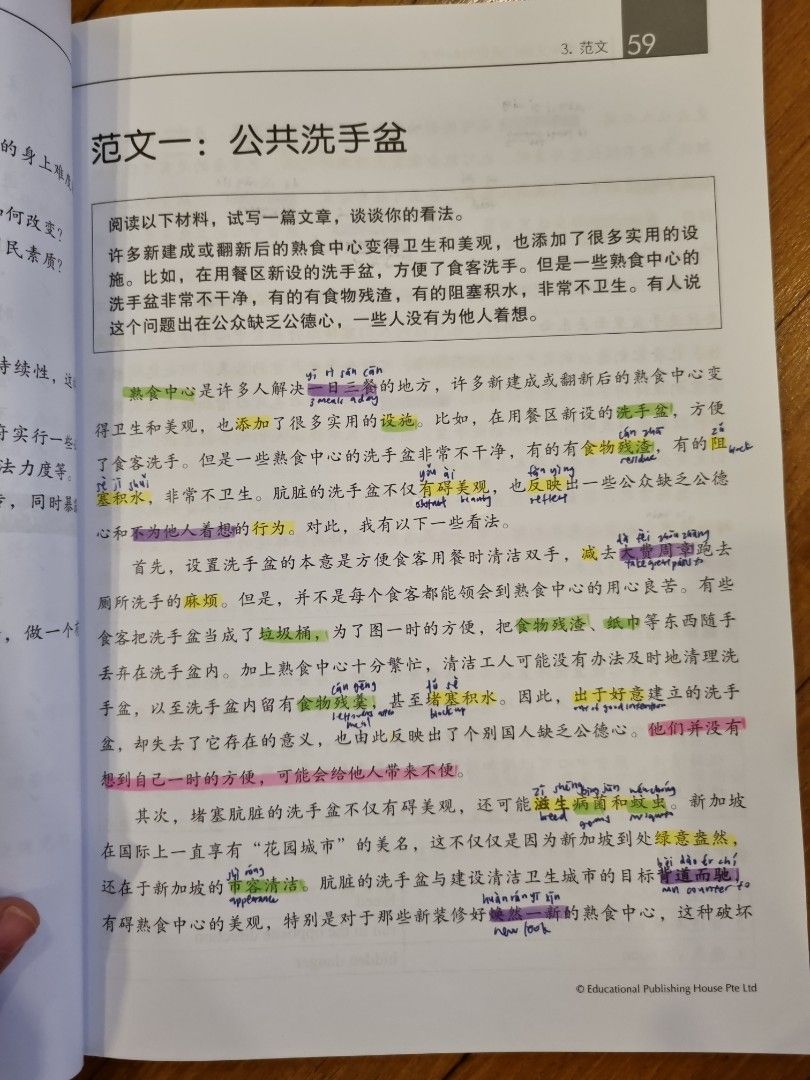 3. 范文
59
的身上难度
如何改变？
民素质？
持续性，这
府实行一些
法力度等。
同时暴
，做一个
范文一：公共洗手盆
阅读以下材料，试写一篇文章，谈谈你的看法。
许多新建成或翻新后的熟食中心变得卫生和美观，也添加了很多实用的设
施。比如，在用餐区新设的洗手盆，方便了食客洗手。但是一些熟食中心的
洗手盆非常不干净，有的有食物残渣，有的阻塞积水，非常不卫生。有人说
这个问题出在公众缺乏公德心，一些人没有为他人着想。
yī rì sān cān
熟食中心是许多人解决一日三餐的地方，许多新建成或翻新后的熟食中心变
3 meals a day
得卫生和美观，也添加了很多实用的设施。比如，在用餐区新设的洗手盆，方便
cán zhā zǔ
了食客洗手。但是一些熟食中心的洗手盆非常不干净，有的有食物残渣，有的阻
residue
sè jī shuǐ yǒu ài fǎn yìng
塞积水，非常不卫生。肮脏的洗手盆不仅有碍美观，也反映出一些公众缺乏公德
obstruct beauty reflect
心和不为他人着想的行为。对此，我有以下一些看法。
dà fèi zhōu zhāng
首先，设置洗手盆的本意是方便食客用餐时清洁双手，减去大费周章跑去
take great pains to
厕所洗手的麻烦。但是，并不是每个食客都能领会到熟食中心的用心良苦。有些
食客把洗手盆当成了垃圾桶，为了图一时的方便，把食物残渣、纸巾等东西随手
丢弃在洗手盆内。加上熟食中心十分繁忙，清洁工人可能没有办法及时地清理洗
cán gēng dǔ sè
手盆，以至洗手盆内留有食物残羹，甚至堵塞积水。因此，出于好意建立的洗手
leftovers after meal block up out of good intention
盆，却失去了它存在的意义，也由此反映出了个别国人缺乏公德心。他们并没有
想到自己一时的方便，可能会给他人带来不便。
zī shēng bìng jūn wén chóng
其次，堵塞肮脏的洗手盆不仅有碍美观，还可能滋生病菌和蚊虫。新加坡
breed germs
在国际上一直享有“花园城市”的美名，这不仅仅是因为新加坡到处绿意盎然，
shì róng bèi dào ér chí
还在于新加坡的市容清洁。肮脏的洗手盆与建设清洁卫生城市的目标背道而驰，
appearance run counter to
huàn rán yī xīn
有碍熟食中心的美观，特别是对于那些新装修好焕然一新的熟食中心，这种破坏
new look
© Educational Publishing House Pte Ltd